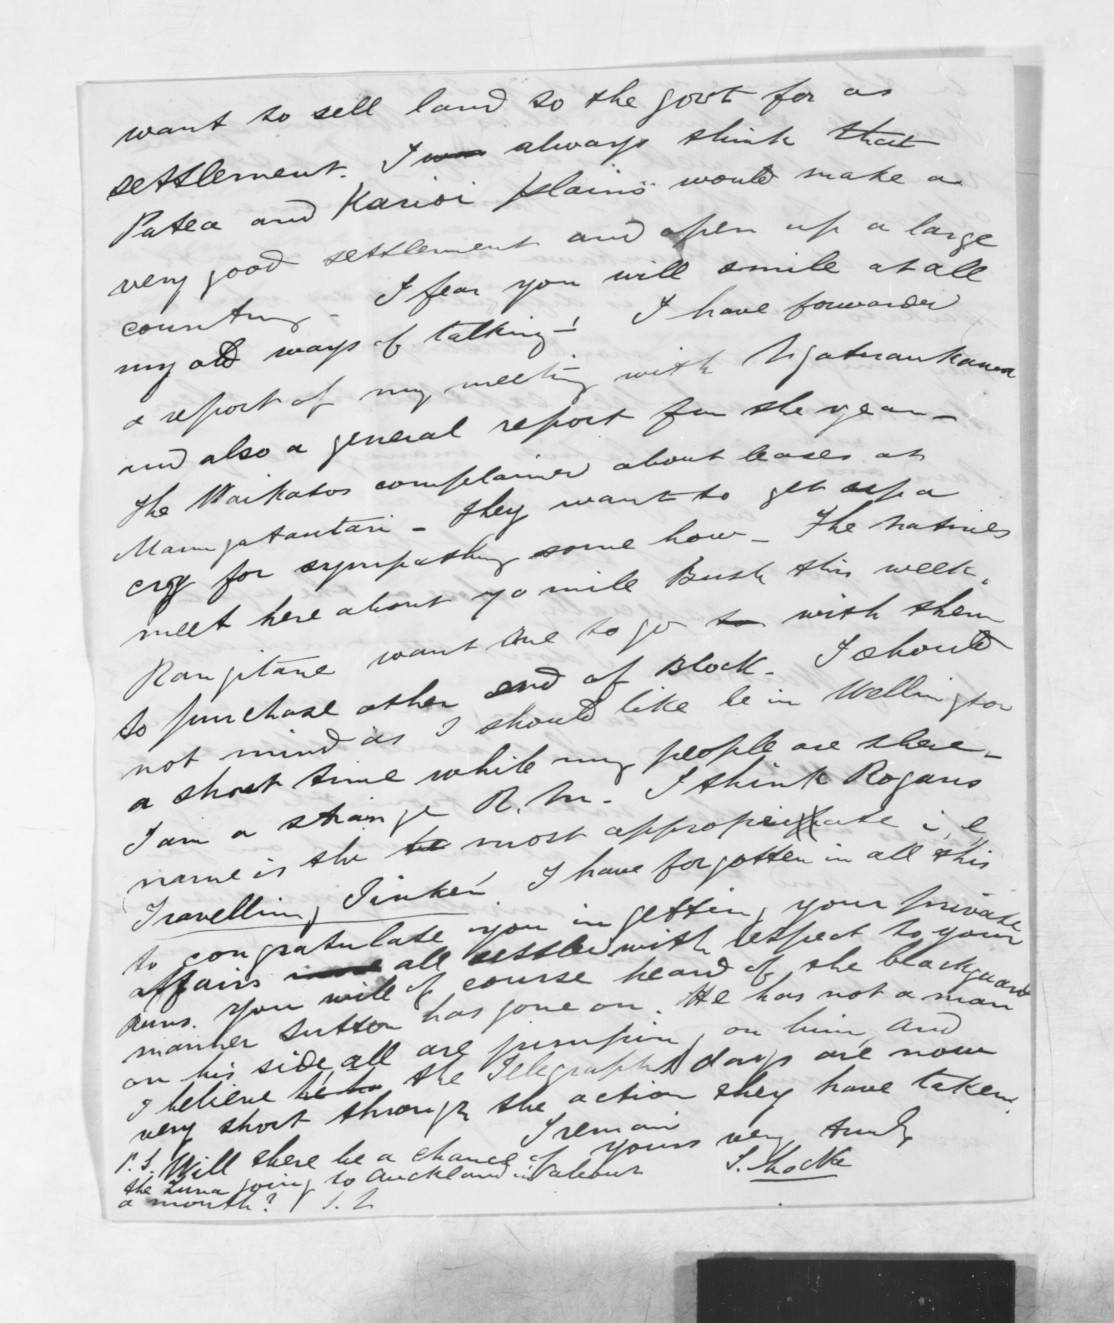 want to sell land to the govt for as
settlement. I was always think that
Patea and Karioi plains would make a
very good settlement and open up a large
country - I fear you will smile at all
my old ways of talking -! I have forwarded
a report of my meeting with Ngatiraukawa
and also a general report for the year -
The Waikatos complained about leases at
Maungatautari - they want to get up a
cry for sympathy some how - The natives
meet here about 70 mile Bush this week.
Rangitane want me to go to with them
to purchase other end of Block. I should
not mind as I should like be in Wellington
a short time while my people are there -
I am a strange R.M. - I think Rogans
name is the to most appropriate i.e
Travelling Tinker! I have forgotten in all this
to congratulate you in getting your private
affairs all settled with respect to your
Runs. You will of course heard of the blackguard
manner Sutton has gone on. He has not a man
on his side, all are jumping on him, and
I believe the Telegraphs days are now
very short through the action they have taken.
I remain
yours very truly
S. Locke
P.S. Will there be a chance of
the Luna going to Auckland in about
a month? S. L